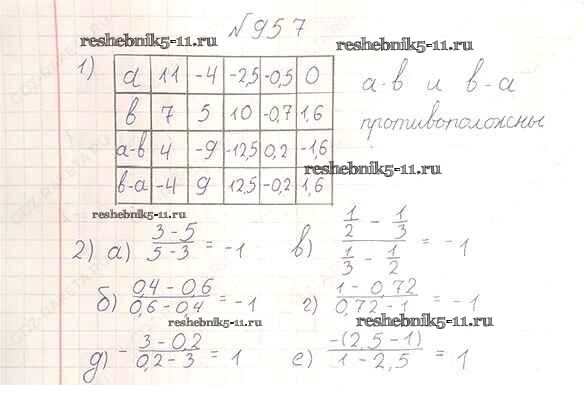 №957
reshebnik5-11.ru
1)
а 11 -4 -2,5 -0,5 0
в 7 5 10 -0,7 1,6
а-в 4 -9 -12,5 0,2 -1,6
в-а -4 9 12,5 -0,2 1,6
reshebnik5-11.ru
а-в и в-а
противоположны
reshebnik5-11.ru
reshebnik5-11.ru
2) а) (3-5)/(5-3) = -1 в) (1/2 - 1/3)/(1/3 - 1/2) = -1
б) (0,4-0,6)/(0,6-0,4) = -1 г) (1-0,72)/(0,72-1) = -1
reshebnik5-11.ru
reshebnik5-11.ru
д) -(3-0,2)/(0,2-3) = 1 е) (-(2,5-1))/(1-2,5) = 1